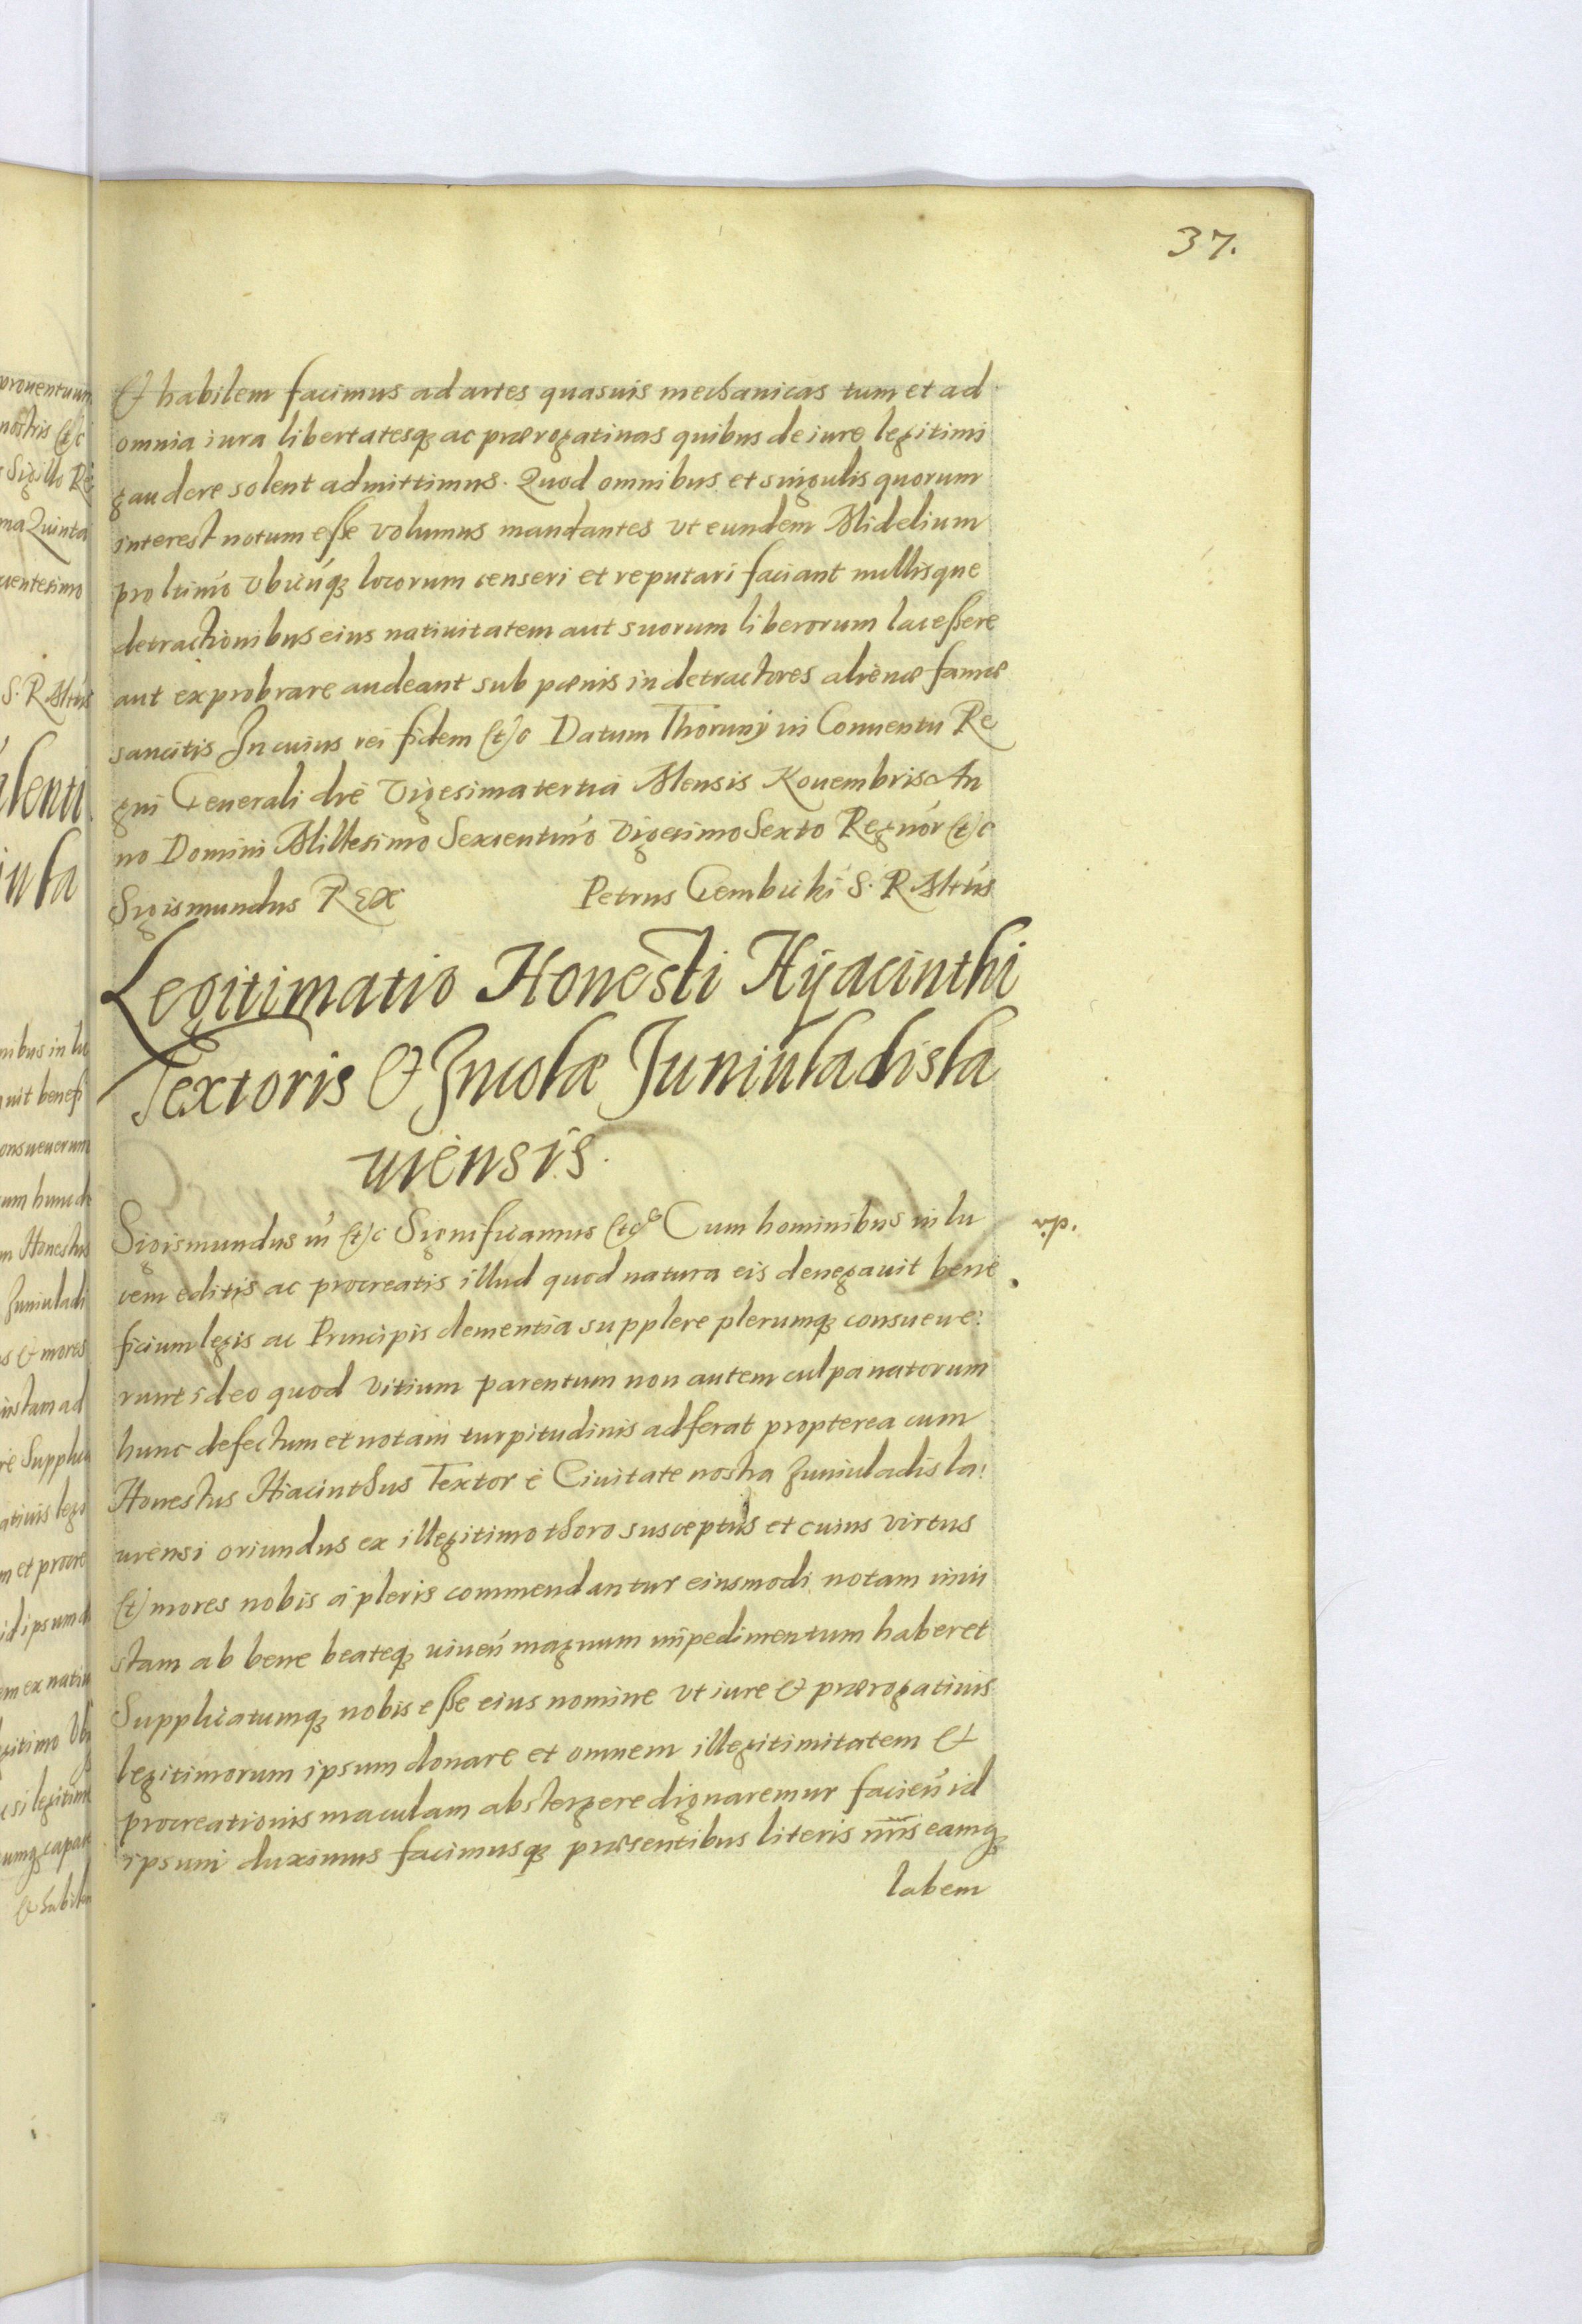 37.
et habilem facimus ad artes quasuis mechanicas tum et ad
omnia iura libertatesq₃ ac prærogatiuas quibus de iure legitimi
gaudere solent admittimus. Quod omnibus et singulis quorum
interest notum esse volumus mandantes vt eundem Midelium
pro ltimo vbicunq₃ locorum censeri et reputari faciant nullisque
detractionibus eius natiuitatem aut suorum liberorum lacessere
aut exprobrare audeant sub pœnis in detractores alienæ famæ
sancitis In cuius rei fidem etc Datum Thorunÿ in Conuentu Re
gni Generali die Vigesima tertia Mensis Nouembris An
no Domini Millesimo Sexcentmo Vigesimo Sexto Regnor etc
Sigismundus REX Petrus Gembicki S. R. Mrus
Legitimatio Honesti Hÿacinthi
Textoris et Incolæ Juniuladisla
uiensis.
Sigismundus iii etc Significamus etc Cum hominibus in lu
cem editis ac procreatis illud quod natura eis denegauit bene
ficium legis ac Principis clementia supplere plerumq₃ consueue:
runt ideo quod vitium parentum non autem culpa natorum
hunc defectum et notam turpitudinis adferat propterea cum
Honestus Hiacinthus Textor è Ciuitate nostra Juniuladisla:
uiensi oriundus ex illegitimo thoro susceptus et cuius virtus
et mores nobis a pleris commendantur eiusmodi notam iniu
stam ab bene beateq₃ uiuen magnum impedimentum haberet
Supplicatumq₃ nobis esse eius nomine vt iure et prærogatiuis
legitimorum ipsum donare et omnem illegitimitatem et
procreationis maculam abstergere dignaremur facien id
ipsum duximus facimusq₃ præsentibus literis nris eamq₃
labem